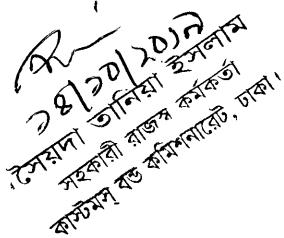 ১৪/১০/২০১৯
সৈয়দা তানিয়া ইসলাম
সহকারী রাজস্ব কর্মকর্তা
কাস্টমস্ বন্ড কমিশনারেট, ঢাকা।